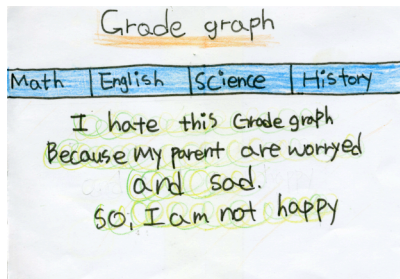 Grade graph
Math English Science History
I hate this Grade graph
Because My parent are worryed
and sad.
so, I am not happy